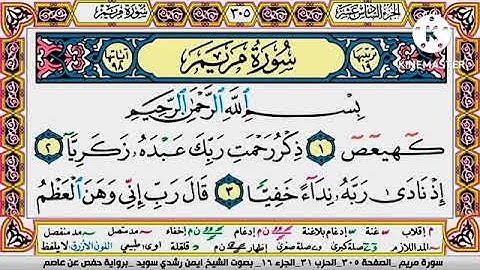 الجزء السادس عشر
٣٠٥
سورة مريم
KINEMASTER
ترتيبها ١٩
سُورَةُ مَرْيَمَ
آياتها ٩٨
بِسْمِ ٱللَّهِ ٱلرَّحْمَٰنِ ٱلرَّحِيمِ
كٓهيعٓصٓ ١ ذِكْرُ رَحْمَتِ رَبِّكَ عَبْدَهُۥ زَكَرِيَّآ ٢
إِذْ نَادَىٰ رَبَّهُۥ نِدَآءً خَفِيًّا ٣ قَالَ رَبِّ إِنِّى وَهَنَ ٱلْعَظْمُ
م إقلاب غنة إدغام بلاغنة ن م إدغام ن م إخفاء مد متصل مد منفصل
المد اللازم صلة كبرى وصلة صغرى إظهار ن م قلقلة طبيعي اللون الأزرق لا يلفظ
سورة مريم _ الصفحة ٣٠٥ _ الحزب ٣١ _ الجزء ١٦ _ بصوت الشيخ ايمن رشدي سويد _ برواية حفص عن عاصم